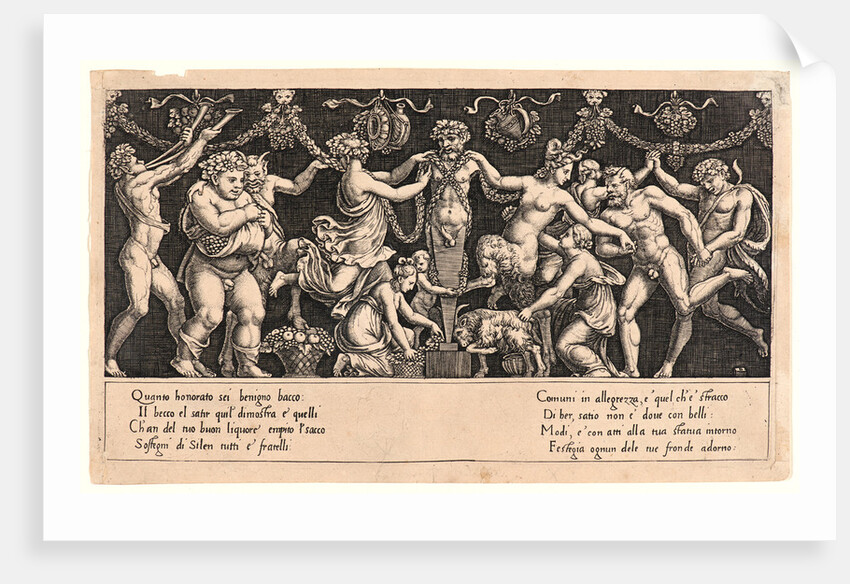 Quanto honorato sei benigno bacco:
Il becco el satir quil dimostra e quelli
Ch'an del tuo buon liquore empito l'sacco
Sostegni di Silen tutti e fratelli:
Comuni in allegrezza, e quel ch'e stracco
Di ber, satio non e doue con belli:
Modi, e con atti alla tua statua intorno
Festegia ognun dele tue fronde adorno: